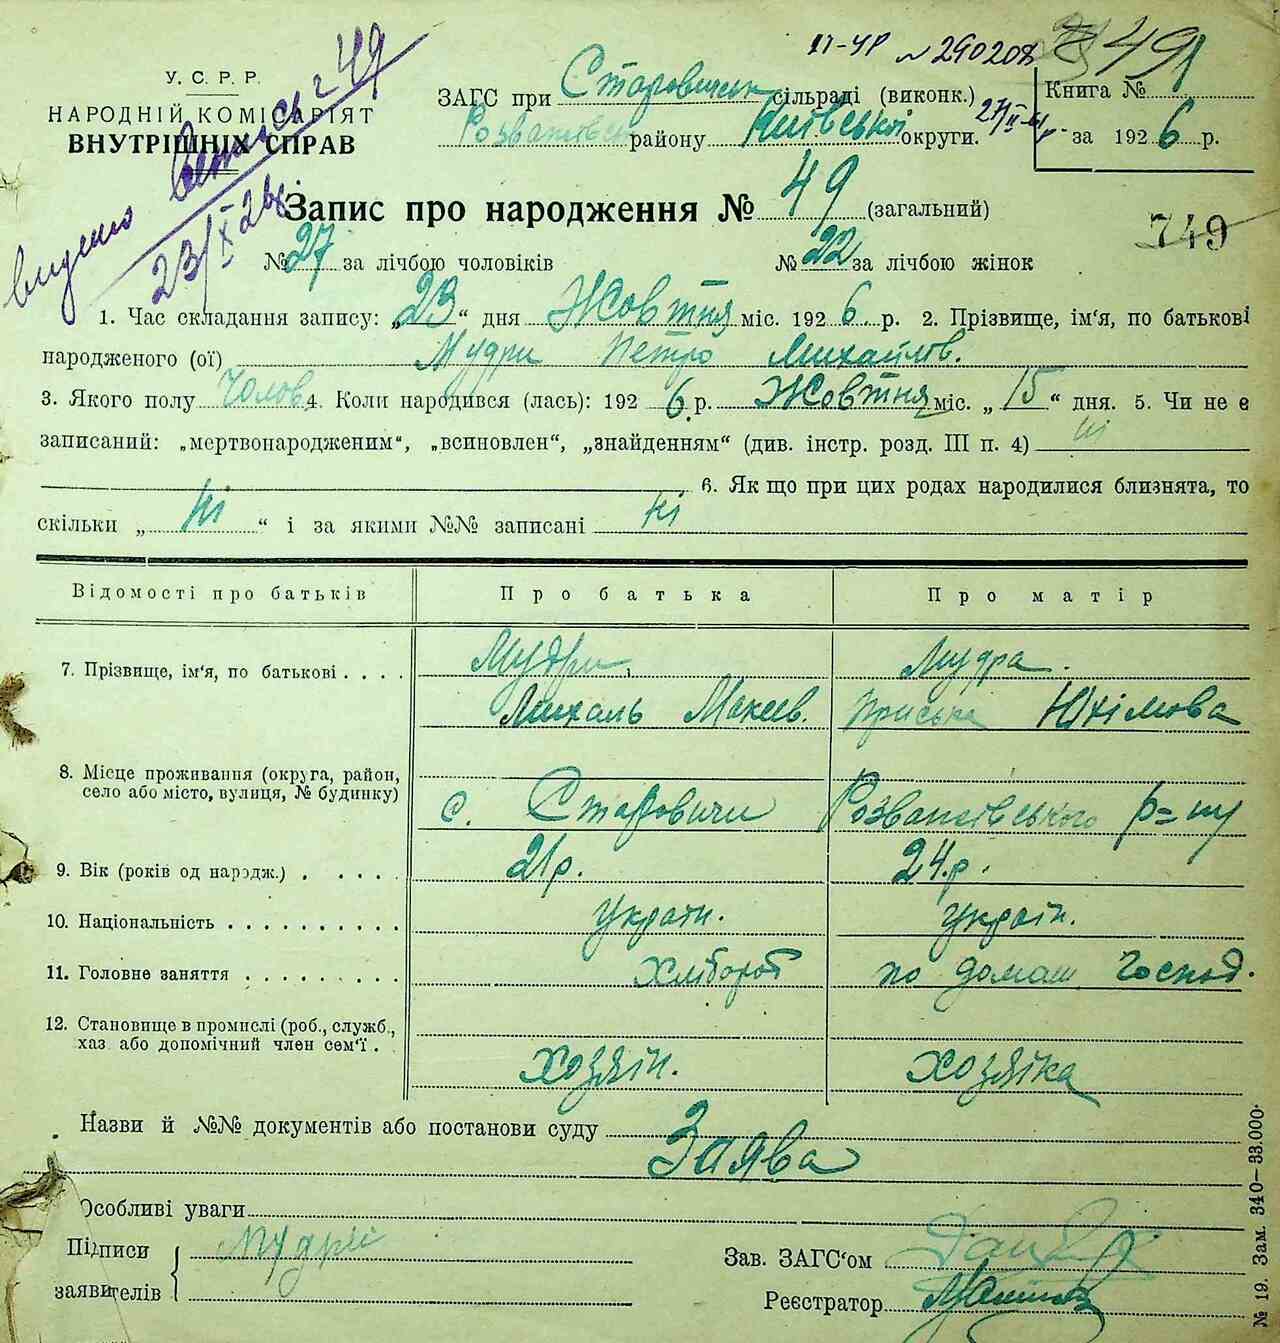 II-ЧР № 290208
491
У. С. Р. Р.
НАРОДНІЙ КОМІСАРІЯТ
ВНУТРІШНІХ СПРАВ
видано Випись 49
23/X 26
ЗАГС при Старовицьк сільраді (виконк.)
Розважівськ району Київської округи.
Книга №
за 1926 р.
Запис про народження № 49 (загальний)
749
№ 27 за лічбою чоловіків № 22 за лічбою жінок
1. Час складання запису: „23“ дня Жовтня міс. 1926 р. 2. Прізвище, ім'я, по батькові
народженого (ої) Мудри Петро Михайлов.
3. Якого полу Чолов. 4. Коли народився (лась): 1926 р. Жовтня міс. „15“ дня. 5. Чи не є
записаний: „мертвонародженим“, „всиновлен“, „знайденням“ (див. інстр. розд. III п. 4) ні
6. Як що при цих родах народилися близнята, то
скільки „ні“ і за якими №№ записані ні
Відомості про батьків Про батька Про матір
7. Прізвище, ім'я, по батькові . . . . Мудри Мудра.
Михаль Мокеев. Приська Юхімова
8. Місце проживання (округа, район,
село або місто, вулиця, № будинку) с. Старовичи Розважівського р=ну
9. Вік (років од народж.) . . . . . 21 р. 24 р.
10. Національність . . . . . . . . . . україн. україн.
11. Головне заняття . . . . . . . . хлібороб по домаш господ.
12. Становище в промислі (роб., служб.,
хаз. або допомічний член сем'ї . хозяїн. хозяйка
Назви й №№ документів або постанови суду
Заява
Особливі уваги
Підписи
заявителів
Мудрий
Зав. ЗАГС'ом
Реєстратор
№ 19. Зам. 340—33.000.